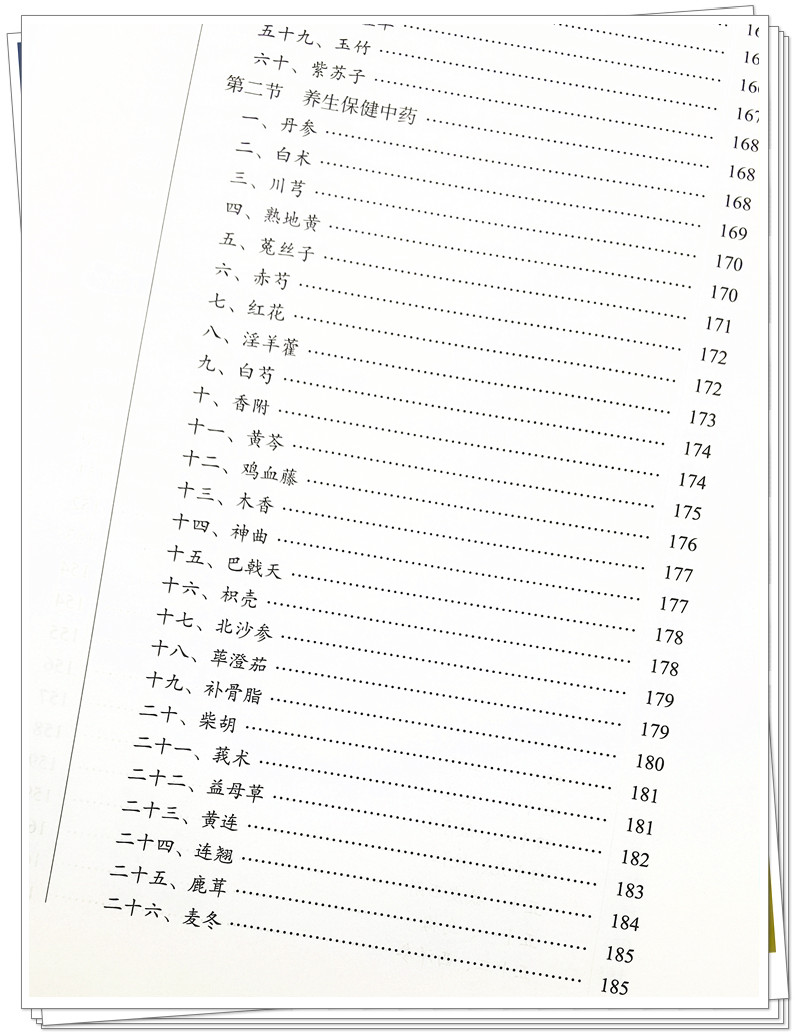 五十九、玉竹 167
六十、紫苏子 168
第二节 养生保健中药 168
一、丹参 168
二、白术 169
三、川芎 170
四、熟地黄 170
五、菟丝子 171
六、赤芍 172
七、红花 172
八、淫羊藿 173
九、白芍 174
十、香附 174
十一、黄芩 175
十二、鸡血藤 176
十三、木香 177
十四、神曲 177
十五、巴戟天 178
十六、枳壳 178
十七、北沙参 179
十八、荜澄茄 179
十九、补骨脂 180
二十、柴胡 181
二十一、莪术 181
二十二、益母草 182
二十三、黄连 183
二十四、连翘 184
二十五、鹿茸 185
二十六、麦冬 185